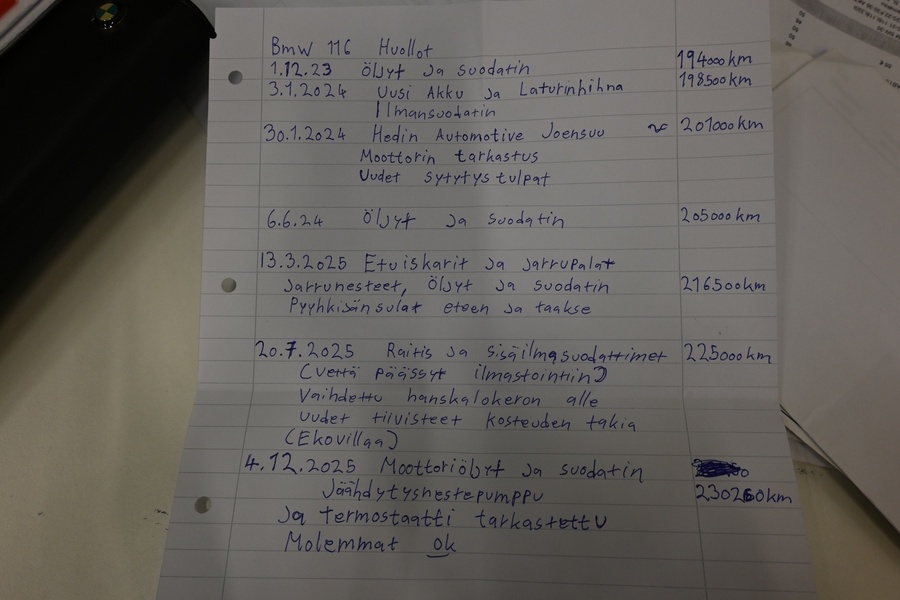 BMW 116 Huollot
1.12.23 Öljyt ja suodatin 194000km
3.1.2024 Uusi Akku ja Laturinhihna 198500km
Ilmansuodatin
30.1.2024 Hedin Automotive Joensuu ~ 201000km
Moottorin tarkastus
Uudet sytytystulpat
6.6.24 Öljyt ja suodatin 205000km
13.3.2025 Etuiskarit ja jarrupalat
Jarrunesteet, Öljyt ja suodatin 216500km
Pyyhkisänsulat eteen ja taakse
20.7.2025 Raitis ja sisäilmasuodattimet 225000km
(vettä päässyt ilmastointiin)
Vaihdettu hanskalokeron alle
uudet tiivisteet kosteuden takia
(Ekovillaa)
4.12.2025 Moottoriöljyt ja suodatin
Jäähdytysnestepumppu 230260km
Ja termostaatti tarkastettu
Molemmat ok